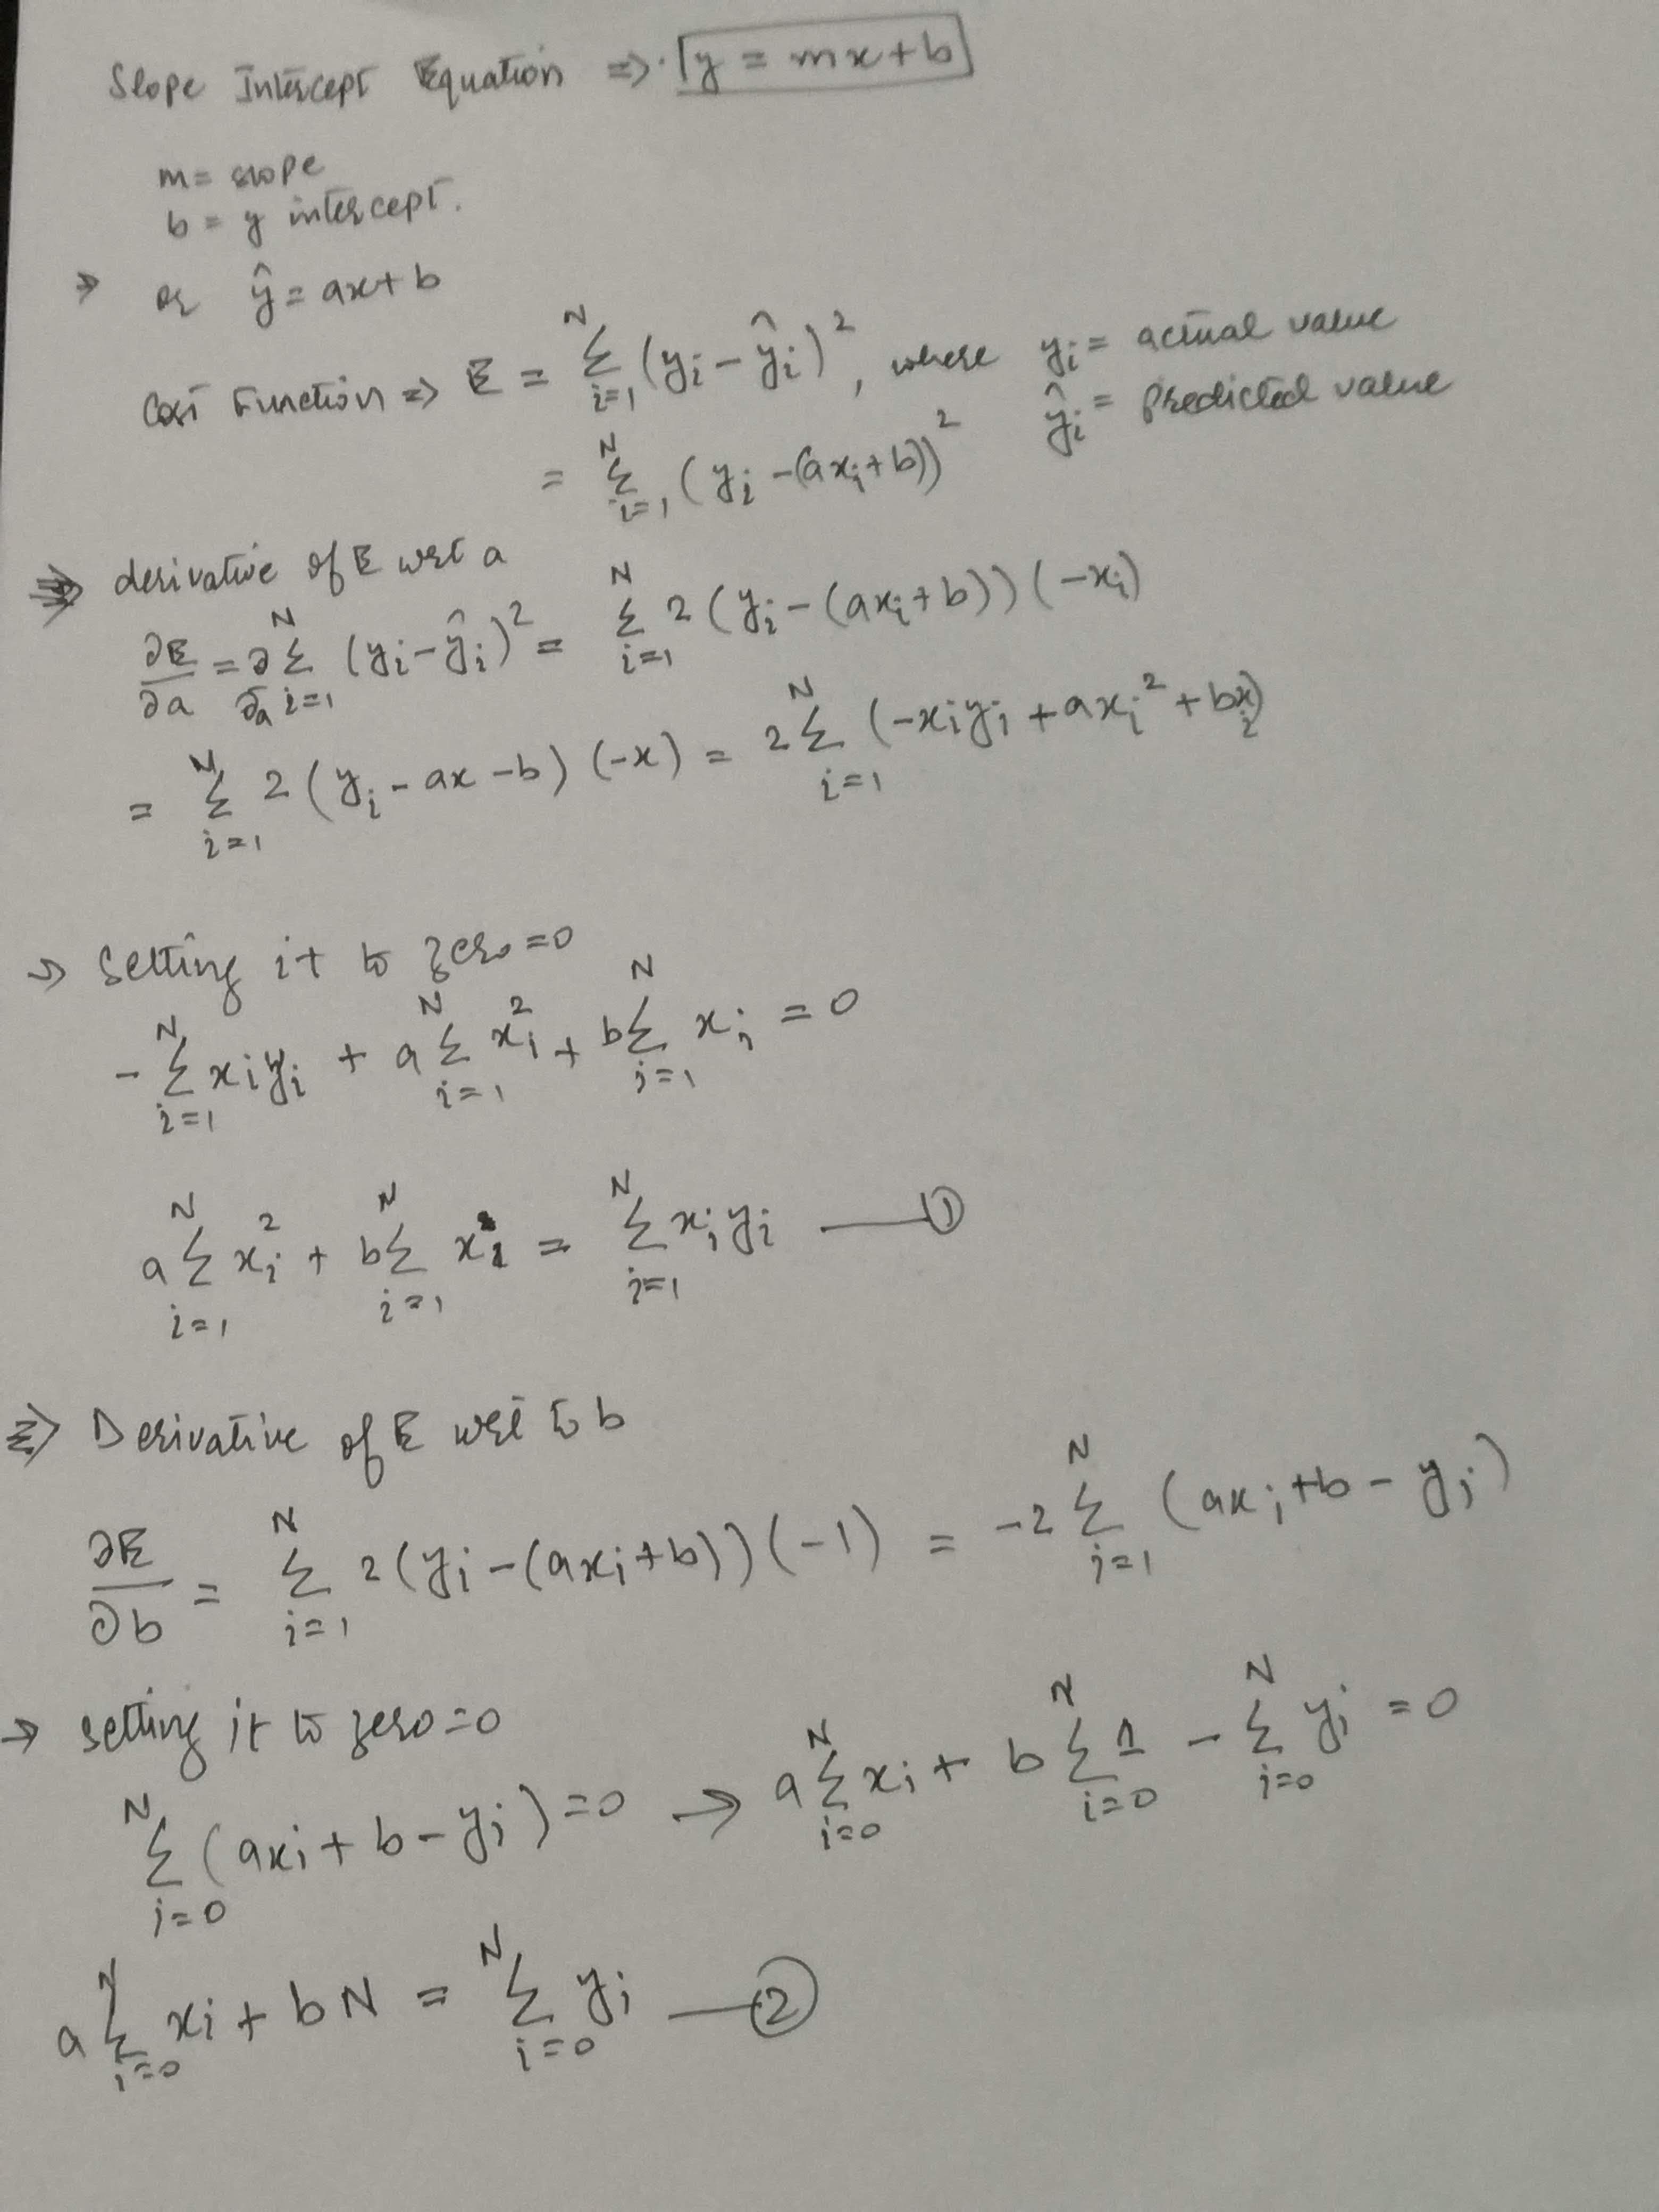 Slope Intercept Equation ⇒ y = mx+b
m = slope
b = y intercept.
⇒ or ŷ = ax+b
Cost Function ⇒ E = Σ_{i=1}^{N} (yi - ŷi)², where yi = actual value
ŷi = predicted value
= Σ_{i=1}^{N} (yi -(axi+b))²
⇒ derivative of E wrt a
∂E/∂a = ∂/∂a Σ_{i=1}^{N} (yi-ŷi)² = Σ_{i=1}^{N} 2 (yi-(axi+b)) (-xi)
= Σ_{i=1}^{N} 2 (yi - ax -b) (-x) = 2 Σ_{i=1}^{N} (-xiyi + axi² + bxi)
→ Setting it to zero=0
- Σ_{i=1}^{N} xiyi + a Σ_{i=1}^{N} xi² + b Σ_{i=1}^{N} xi = 0
a Σ_{i=1}^{N} xi² + b Σ_{i=1}^{N} xi = Σ_{i=1}^{N} xiyi — ①
⇒ Derivative of E wrt to b
∂E/∂b = Σ_{i=1}^{N} 2(yi-(axi+b))(-1) = -2 Σ_{i=1}^{N} (axi+b-yi)
→ setting it to zero=0
Σ_{i=0}^{N} (axi+b-yi)=0 → a Σ_{i=0}^{N} xi + b Σ_{i=0}^{N} 1 - Σ_{i=0}^{N} yi = 0
a Σ_{i=0}^{N} xi + bN = Σ_{i=0}^{N} yi — ②